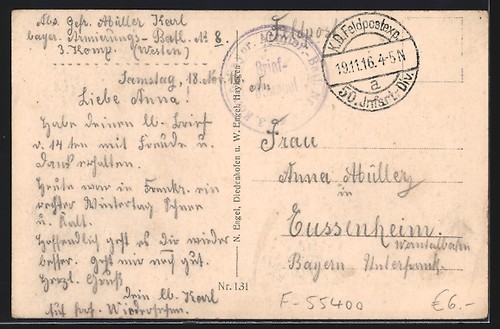 Abs. Gefr. Müller Karl
bayer. Armierungs-Batl. Nr 8.
3. Komp. (Westen)
Samstag, 18. Nov. 16
Liebe Anna!
Habe deinen lb. Brief
v. 14 ten mit Freude u.
Dank erhalten.
Heute war in Frankr. ein
rechter Wintertag Schnee
u. Kalt.
Hoffendlich geht es Dir wieder
besser. geht mir noch gut.
Herzl. Gruß
Dein lb. Karl
Auf fro. Wiedersehen.
N. Engel, Diedenhofen u. W. Engel, Hayingen
Nr. 131
Feldpost
Brief-
An
K.D. Feldpostexp.
19.11.16. 4-5 N
a
50. Infant.-Div.
Frau
Anna Müller
in
Eussenheim.
Werntalbahn
Bayern Unterfrank.
F-55400
€6.-